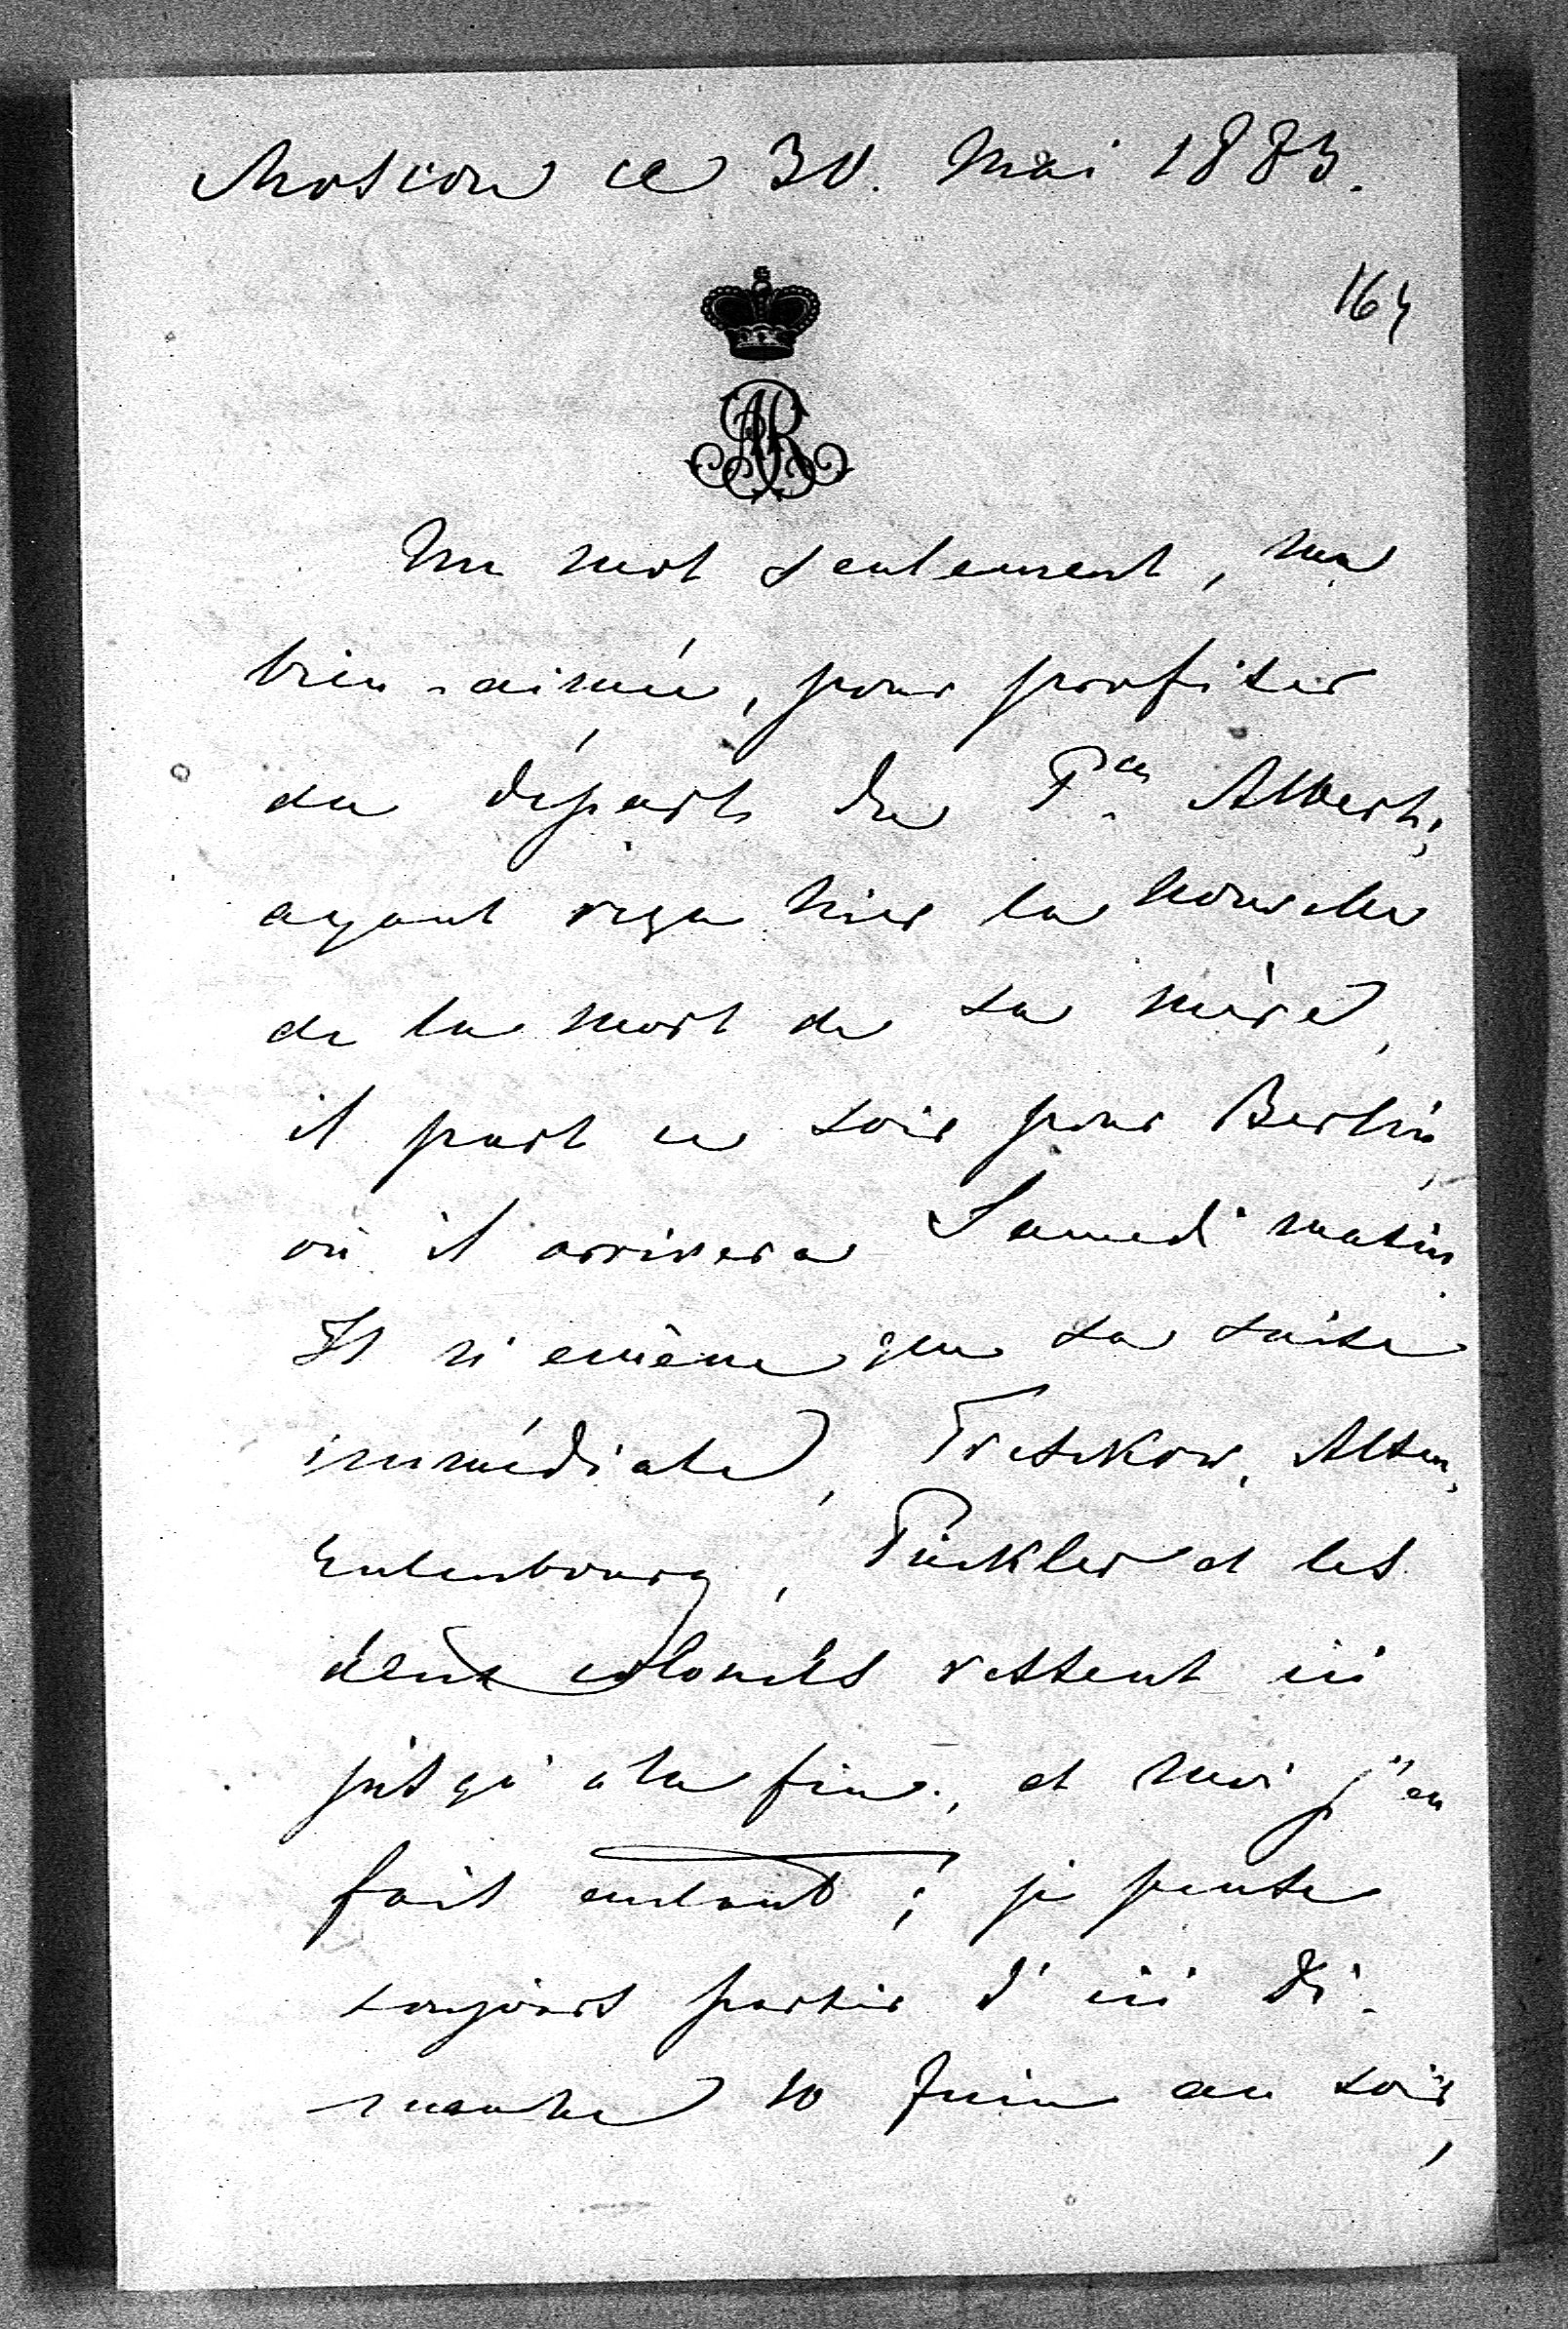 Moscou ce 30. Mai 1883.
164
AR
Un mot seulement, ma
bien-aimée, pour profiter
du départ du P.ce Albert;
ayant reçu hier la nouvelle
de la mort de sa mère,
il part ce soir pour Berlin,
où il arrivera Samedi matin.
Il n'emène que sa suite
immédiate, Treskow, Alten,
Eulenbourg, Pückler et les
deux colonels restent ici
jusqu'à la fin, et moi j'en
fais autant; je pense
toujours partir d'ici Di-
manche 10 Juin au soir,